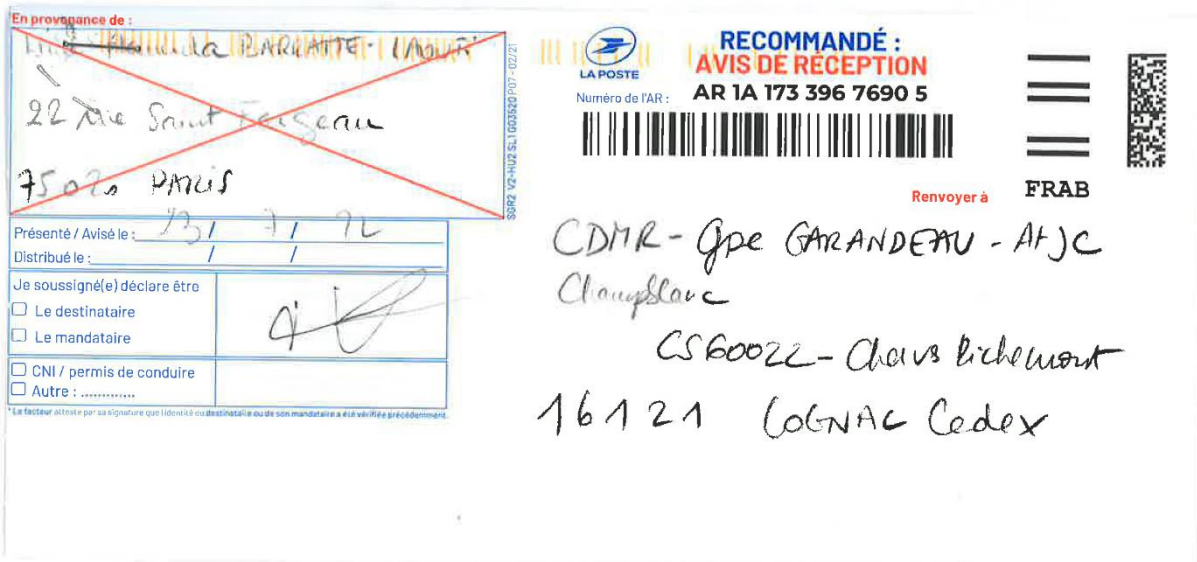 En provenance de :
la BARLATTE-
22 rue Saint Fargeau
75020 PARIS
SGR2 V2-HU2.SL1 G03520P07-02/21
Présenté / Avisé le : 13 / 7 /
Distribué le : / /
Je soussigné(e) déclare être
Le destinataire
Le mandataire
CNI / permis de conduire
Autre : .............
* Le facteur atteste par sa signature que l'identité du destinataire ou de son mandataire a été vérifiée précédemment.
LA POSTE
RECOMMANDÉ :
AVIS DE RÉCEPTION
Numéro de l'AR : AR 1A 173 396 7690 5
Renvoyer à
FRAB
CDMR - Gpe GARANDEAU - AtJC
Champblanc
CS60022 - Chavs Richemont
16121 COGNAC Cedex